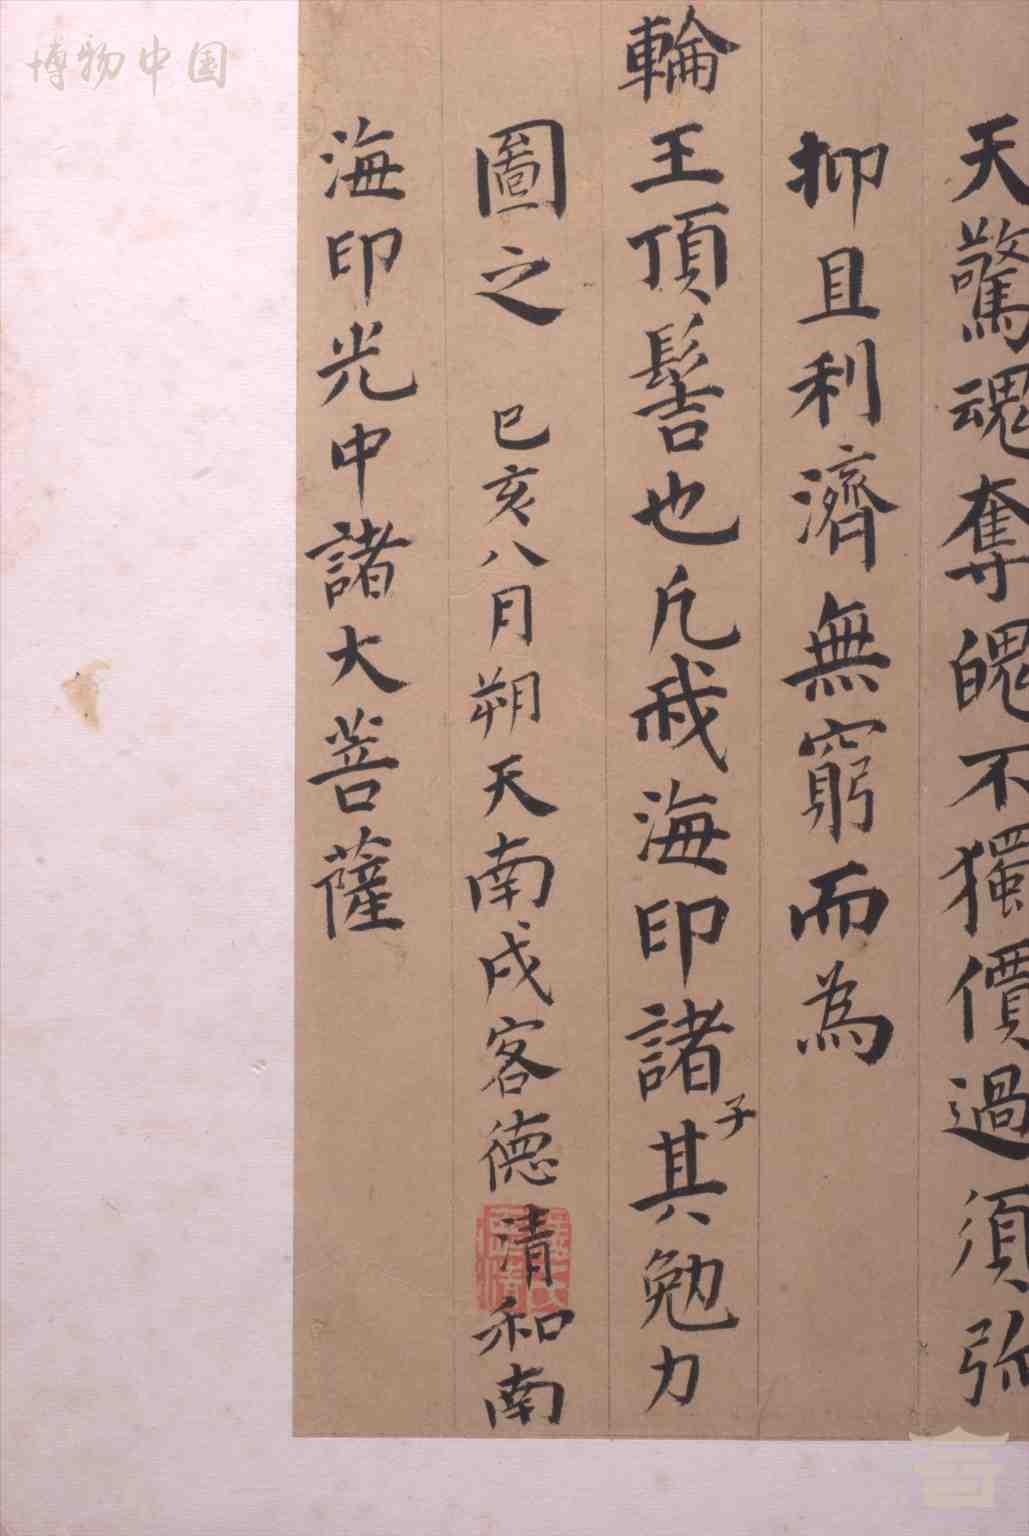 天驚魂奪魄不獨價過須弥
抑且利濟無窮而為
輪王頂髻也凡我海印諸子其勉力
圖之 己亥八月朔天南戍客德清和南
海印光中諸大菩薩
博物中国